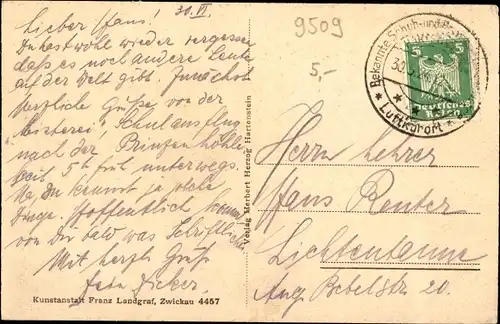 30. VI.
Lieber Hans!
Du hast wohl wieder vergessen
daß es noch andere Leute
auf der Welt gibt. Zunächst
herzliche Grüße von der
Schulausflug
nach der Prinzenhöhle
seit 5h früh unterwegs.
Na, Du kennst ja solche
Dinge. Hoffentlich kommt
von Dir bald was Schriftliches
Mit herzl. Gruß
Kunstanstalt Franz Landgraf, Zwickau 4457
Verlag Herbert Herzog Hartenstein
9509
5,-
Bekannte Schuh- und
30.
* Luftkurort *
5 5
Deutsches
Reich
Herrn Lehrer
Hans Reuter
Lichtentanne
Aug. Bebelstr 20.